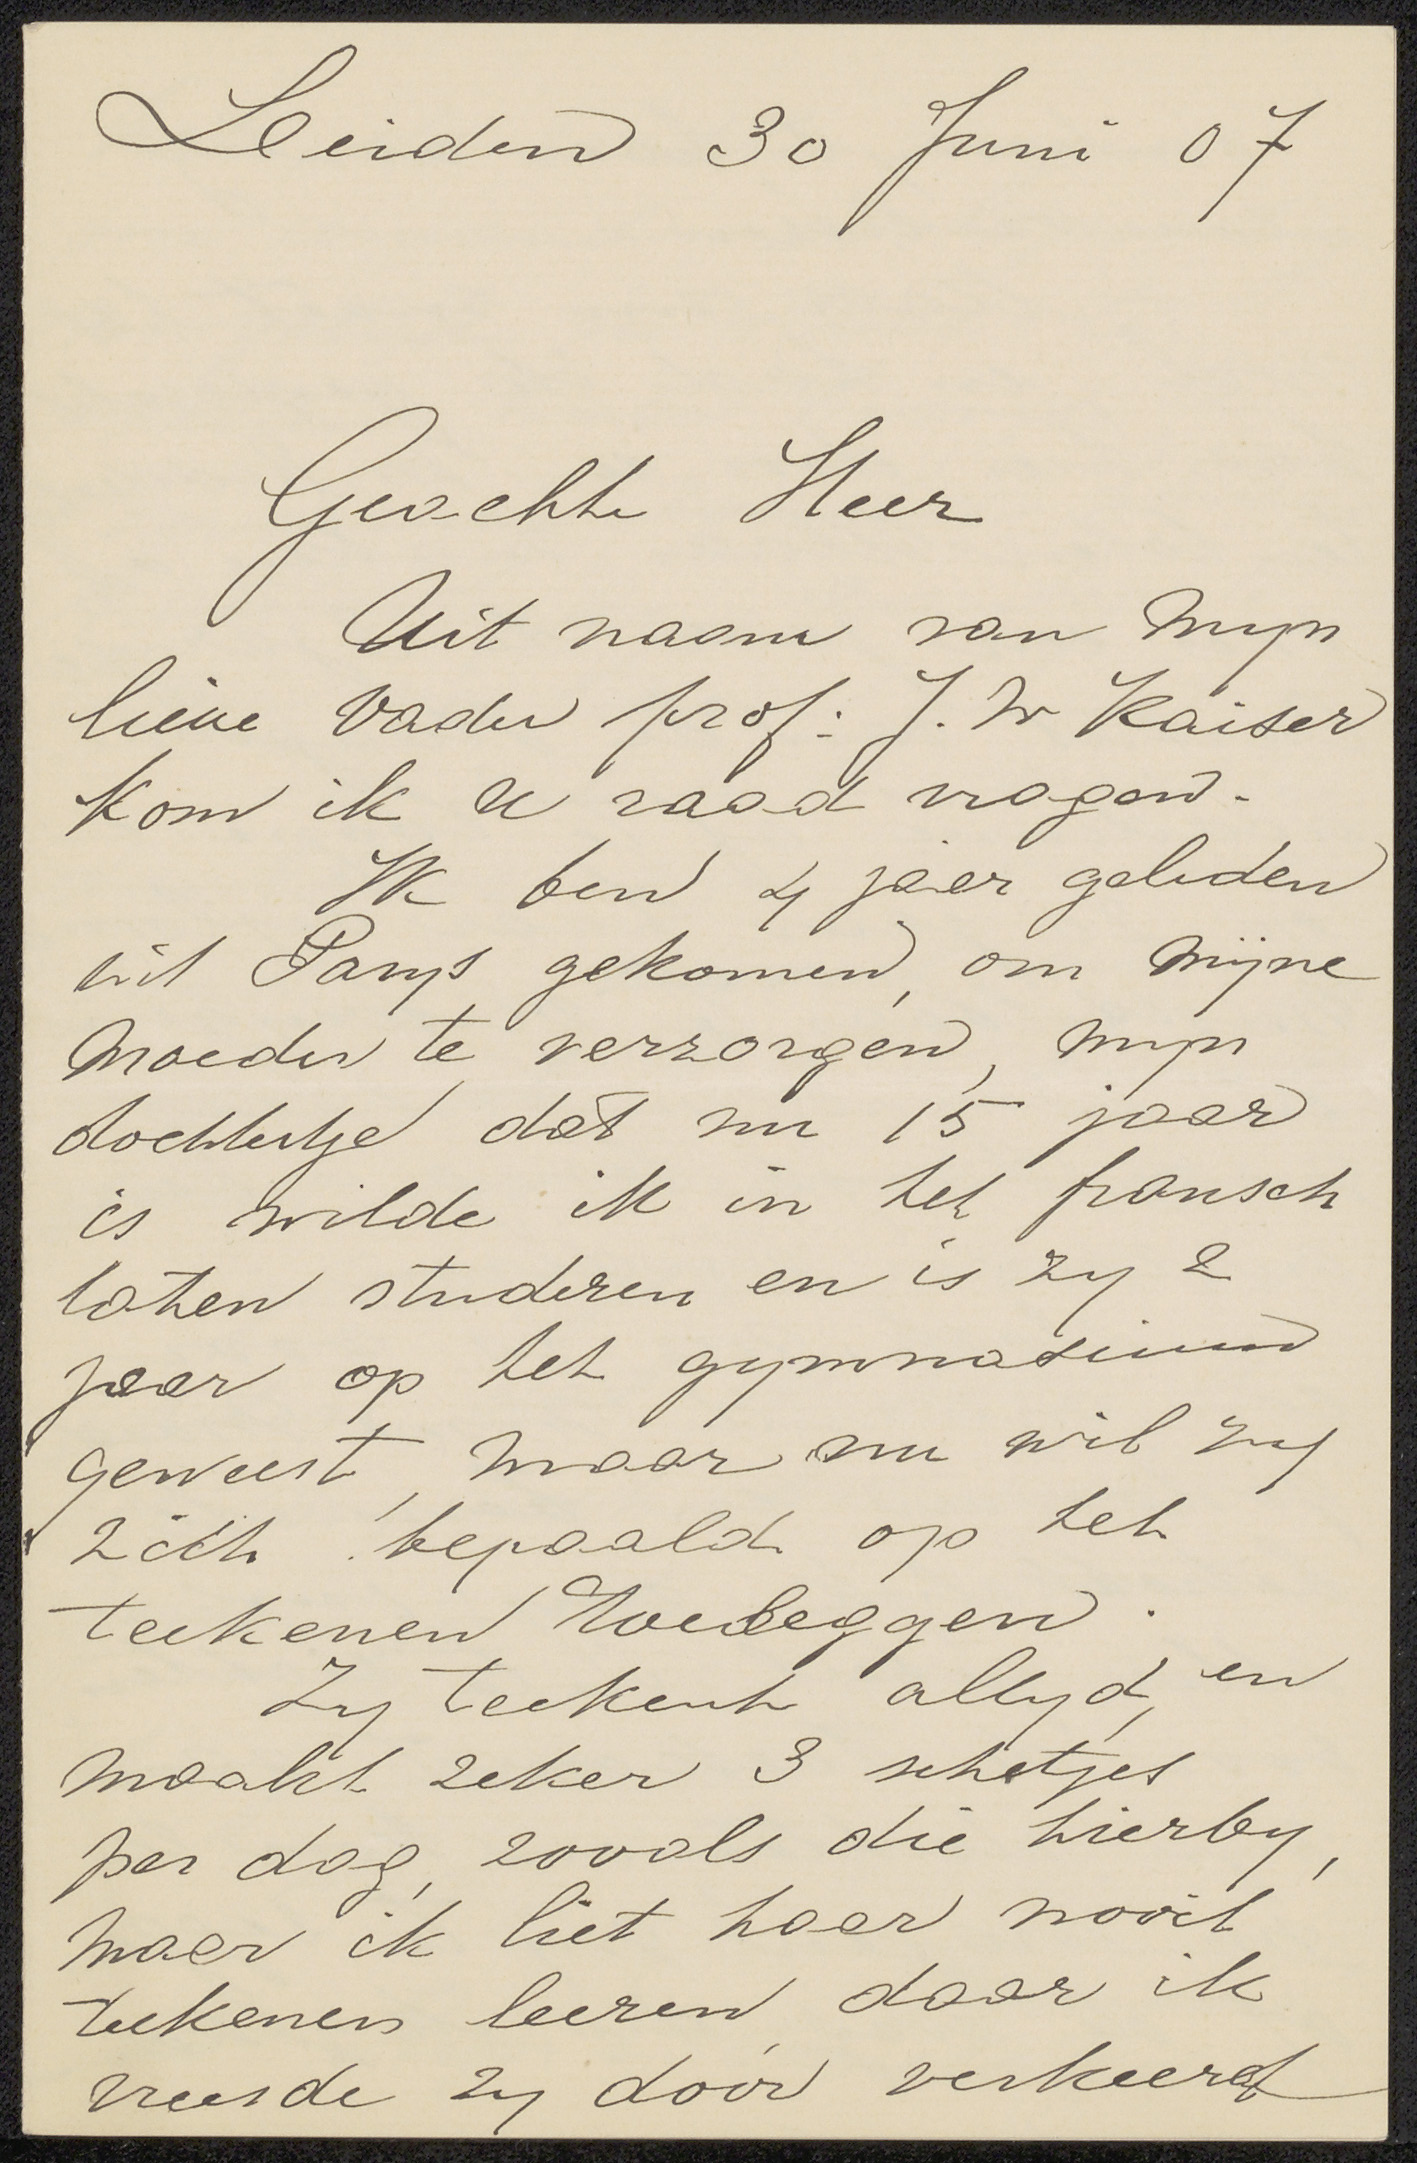 Leiden 30 Juni 07
Geachte Heer
Uit naam van mijn
lieve Vader prof: J. W Kaiser
kom ik U raad vragen.
Ik ben 4 jaar geleden
uit Parijs gekomen, om mijne
Moeder te verzorgen, mijn
dochtertje dat nu 15 jaar
is wilde ik in het fransch
laten studeren en is zij 2
jaar op het gymnasium
geweest, maar nu wil zij
zich bepaald op het
teekenen toeleggen.
Zij teekent altijd, en
maakt zeker 3 schetjes
per dag, zooals die hierby,
maar ik liet haar nooit
teekenen leeren, daar ik
vreesde zij door verkeerd